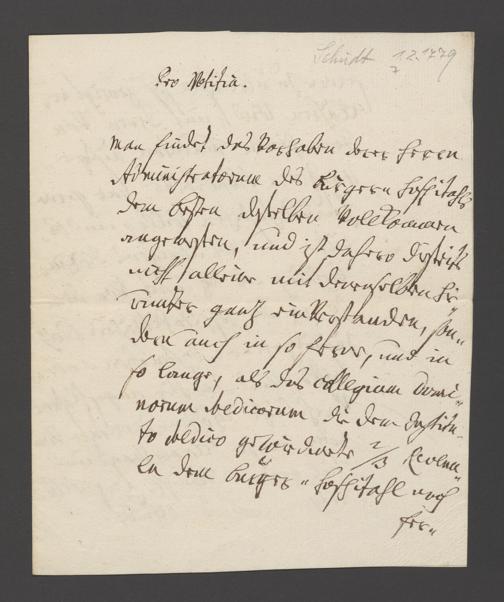 Schidt 12.1779
7
Pro Notitia.
Man findet das Vorhaben derer Herren
Administratorum des Bürger Hospitahls
dem besten desselben Vollkommen
angemessen, und ist dahero disseits
nicht alleine mit denenselben hi-
runter gantz einverstanden, son-
dern auch in so ferne, und in
so lange, als das Collegium Domi-
norum Medicorum die dem
to Medico gewidmete 2/3
le dem Bürger-Hospitahl noch
fer-